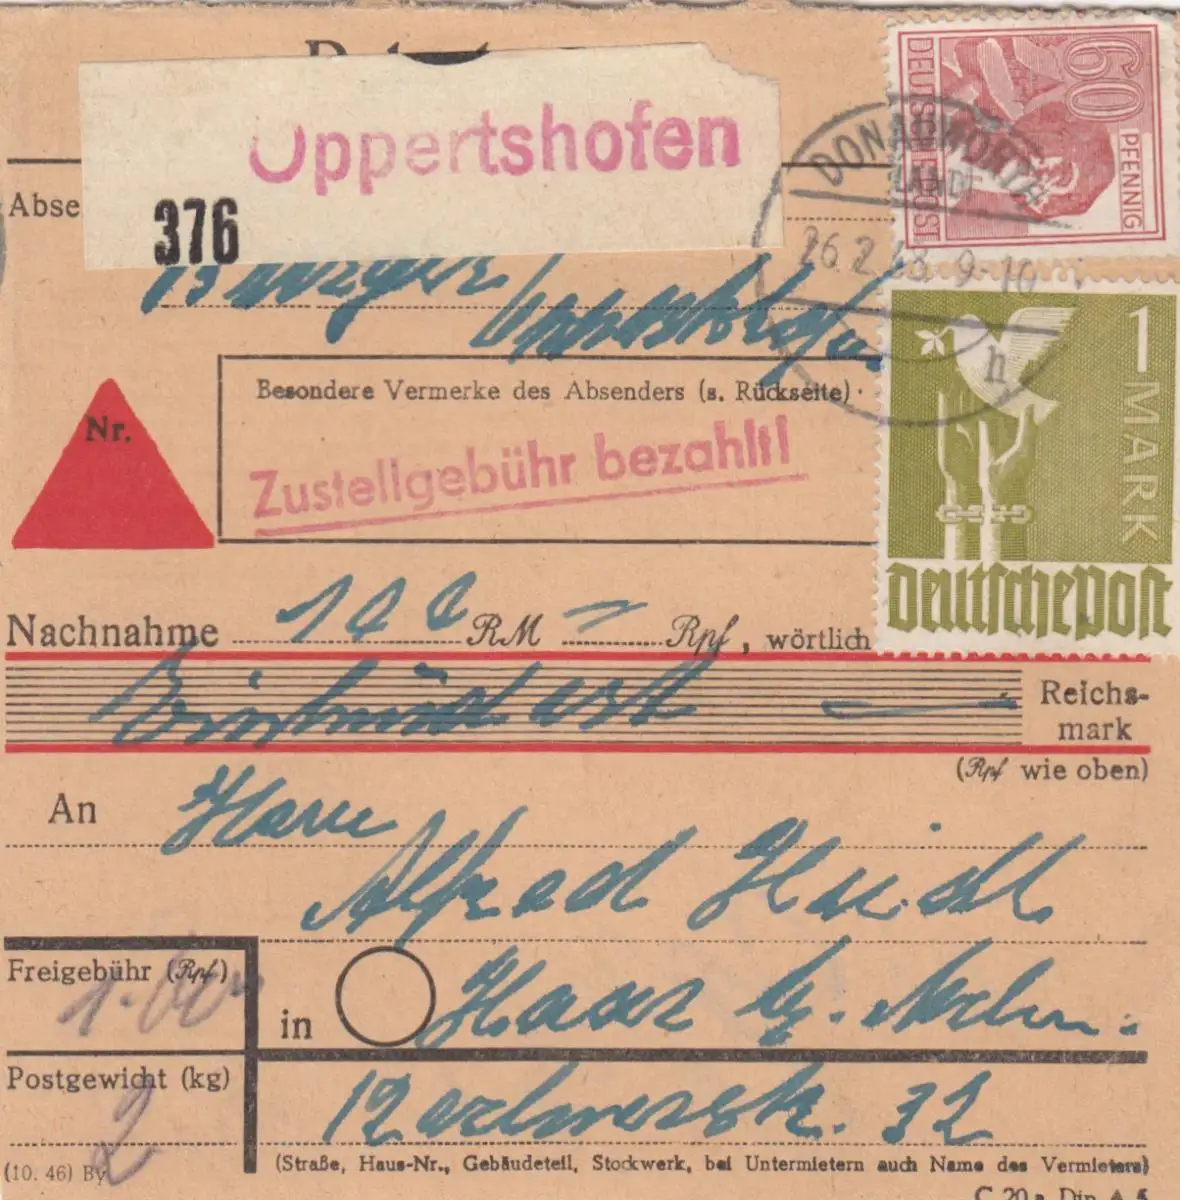 Oppertshofen
376
Abse
Oppertshofen
60
PFENNIG
DEUTSCHE POST
DONAUWÖRTH
LAND
26.2.48.9-10
h
1 MARK
Deutsche Post
Besondere Vermerke des Absenders (s. Rückseite)
Zustellgebühr bezahlt!
Nr.
Nachnahme 100 RM = Rpf, wörtlich
Einhundert
Reichs-
mark
(Rpf wie oben)
An Herrn
Alfred
Freigebühr (Rpf)
in Haar b.
Postgewicht (kg)
2
32
(Straße, Haus-Nr., Gebäudeteil, Stockwerk, bei Untermietern auch Name des Vermieters)
(10. 46) By
C 20a Din A 5